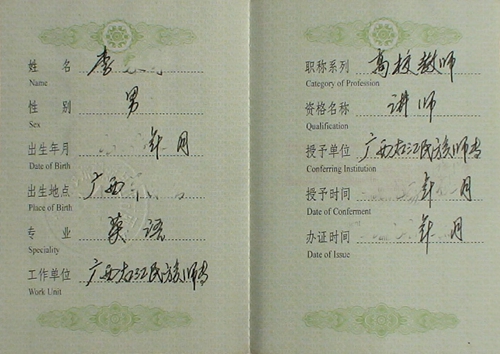 姓 名 李
Name
性 别 男
Sex
出生年月 年 月
Date of Birth
出生地点 广西
Place of Birth
专 业 英语
Speciality
工作单位 广西右江民族师专
Work Unit
职称系列 高校教师
Category of Profession
资格名称 讲师
Qualification
授予单位 广西右江民族师专
Conferring Institution
授予时间 年 月
Date of Conferment
办证时间 年 月
Date of Issue